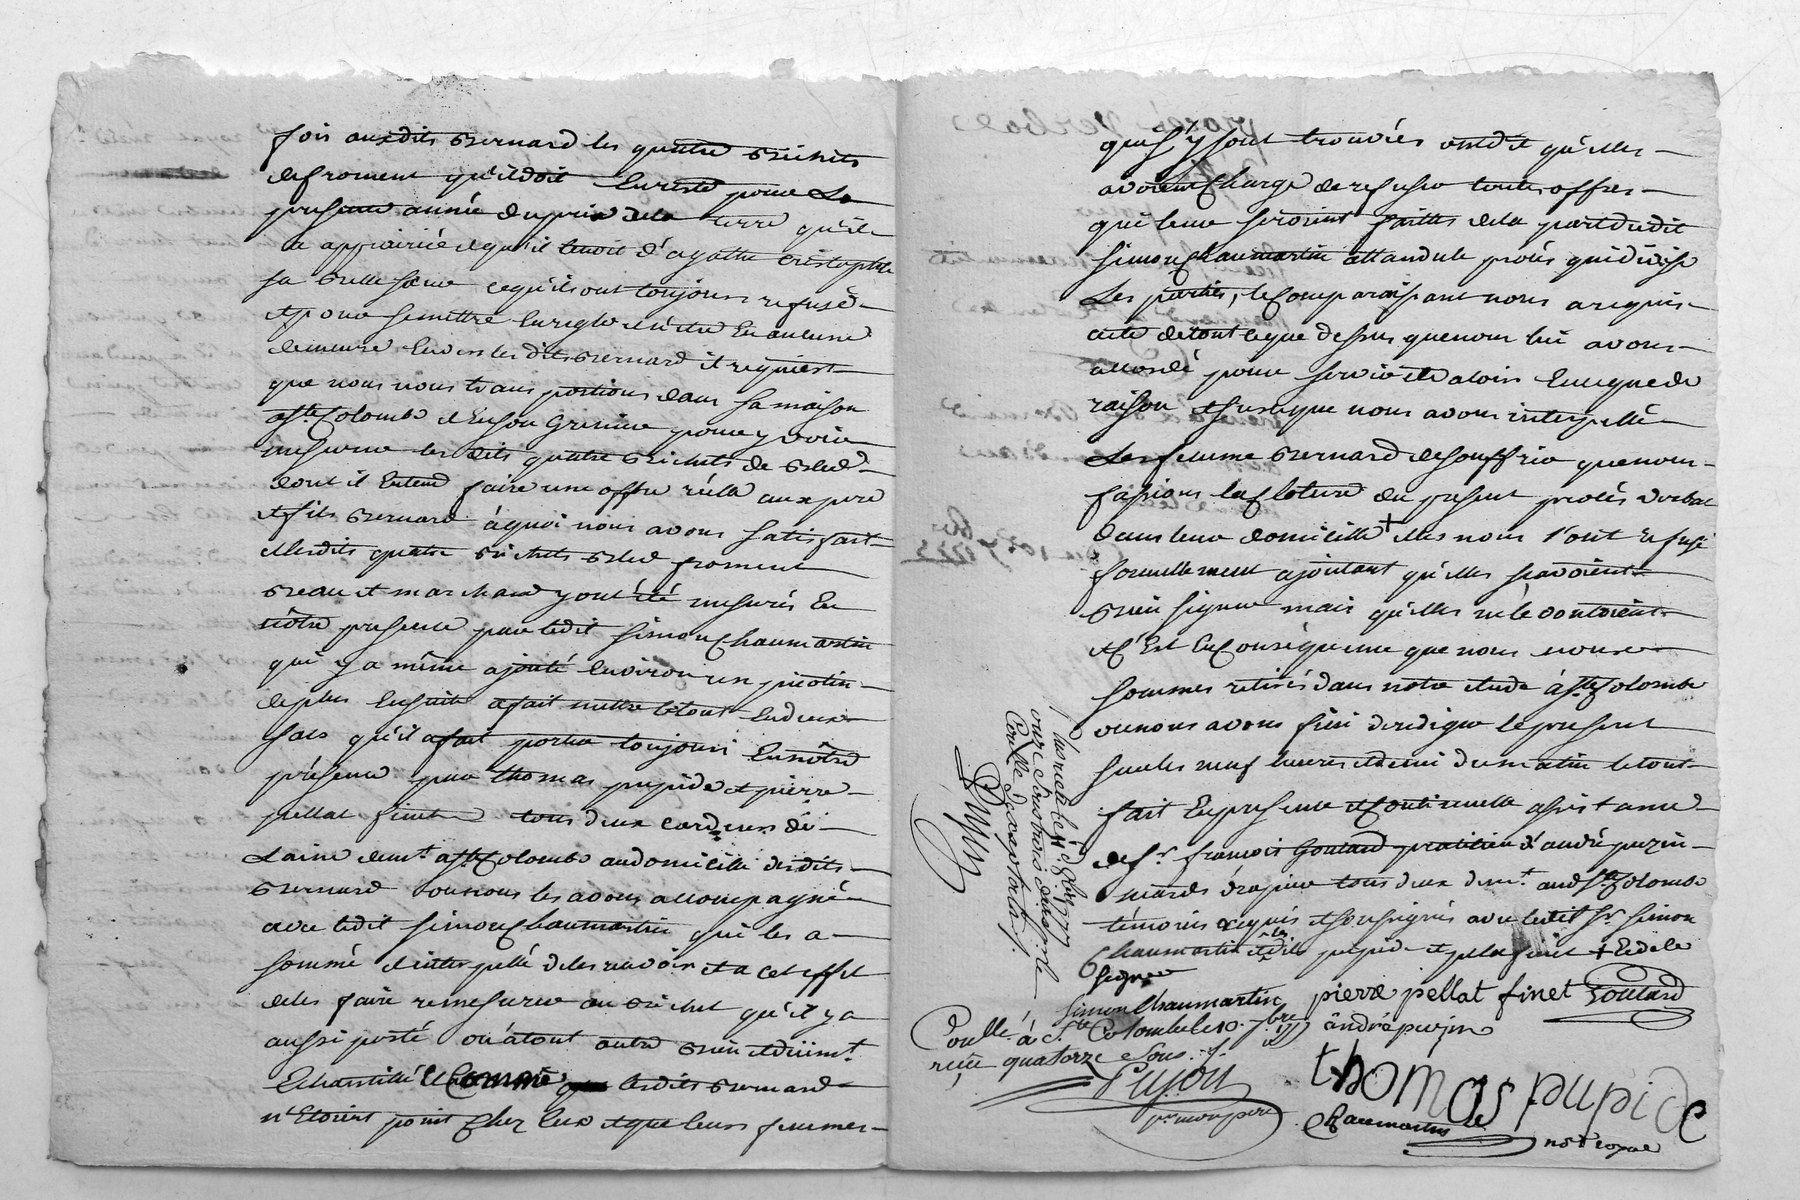 fois auxdits Bernard les quatre bichets
de froment qu'il doit leur reste pour la
presente année du prix de la terre qu'il
a appairiée et qu'il tenoit d'agathe Cristophle
sa belle soeur ce qu'ils ont toujours refusé
et pour se mettre en regle et n'être en aucune
demeure Envers les dits Bernard il requiert
que nous nous transportions dans sa maison
à Ste Colombe et En son Grenier pour y voir
mesurer les dits quatre bichets de bled
dont il Entend faire une offre réelle aux pere
et fils Bernard à quoi nous avons satisfait
et lesdits quatre bichets bled froment
beau et marchand y ont été mesurés En
nôtre presence par ledit Simon Chaumartin
qui y a même ajouté Environ un picotin
de plus Ensuite a fait mettre le tout En deux
sacs qu'il a fait porter toujours En nôtre
présence par thomas pupide et pierre
pellat finet tous deux cardeurs de
Laine demt. à Ste Colombe au domicille desdits
Bernard ou nous les avons accompagné
avec ledit Simon Chaumartin qui les a
sommé et interpellé de les recevoir et a cet effet
de les faire remesurer au bichet qu'il y a
aussi porté ou à tout autre bien et duemt.
Echantillé et lesdits Bernard
n'Etoient point chez Eux et que leurs femmes
qui s'y sont trouvées ont dit qu'elles
avoient Charge de refuser toutes offres
qui leur seroient faittes de la part dudit
Simon Chaumartin attandu le procés qui divise
Les parties, le Comparaissant nous a requis
acte de tout ce que dessus que nous lui avons
accordé pour servir et valoir En ce que de
raison et sur ce que nous avons interpellé
Les femme Bernard de souffrir que nous
fassions la Cloture du present procés verbal
dans leur domicille + elles nous l'ont refusé
formellement ajoutant qu'elles sçavoient
bien signer mais qu'elles ne le vouloient
et C'Est En Conséquence que nous nous
sommes retirés dans notre étude à Ste Colombe
ou nous avons fini de rediger le present
sur les neuf heures et demi du matin le tout
fait En presence et Continuelle assistance
de sr. françois Goutard praticien et d'andré puzin
tous deux demt. audt Ste Colombe
témoins requis et soussignés avec ledit sr Simon
Chaumartin et lesdits pupide et pelat finet +
signer
Simon Chaumartin pierre pellat finet Goutard
andré puzin
Coullé à Ste Colombe le 10. 7bre 1777
reçu quatorze sous .f.
Pujon
pr. mon pere
thomas pupide
Chaumartin
not royal